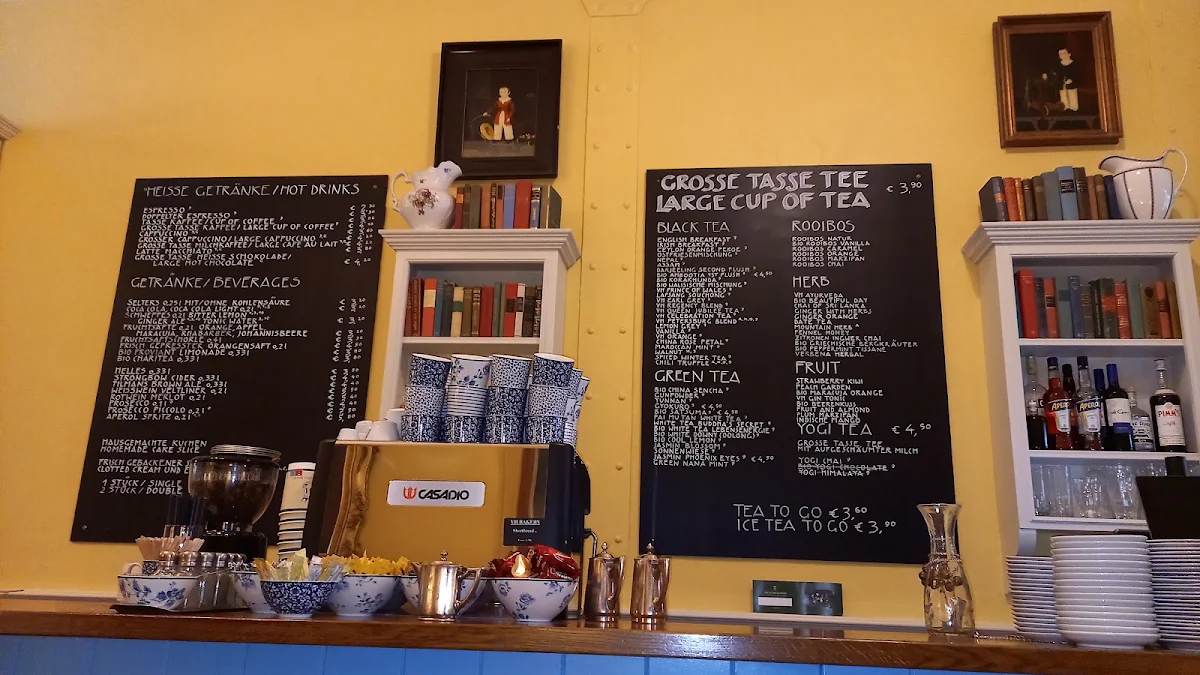 HEISSE GETRÄNKE/HOT DRINKS
ESPRESSO
DOPPELTER ESPRESSO
TASSE KAFFEE/CUP OF COFFEE
GROSSE TASSE KAFFEE/LARGE CUP OF COFFEE
CAPPUCCINO
GROSSER CAPPUCCINO/LARGE CAPPUCCINO
GROSSE TASSE MILCHKAFFEE/LARGE CAFE AU LAIT
LATTE MACCHIATO
GROSSE TASSE HEISSE SCHOKOLADE/
LARGE HOT CHOCOLATE
GETRÄNKE/BEVERAGES
SELTERS 0,25l MIT/OHNE KOHLENSÄURE
COCA COLA, COCA COLA LIGHT 0,2l
SCHWEPPES 0,2l BITTER LEMON
GINGER ALE TONIC WATER
FRUCHTSÄFTE 0,2l ORANGE, APFEL
MARACUJA, RHABARBER, JOHANNISBEERE
FRUCHTSAFTSCHORLE 0,4l
FRISCH GEPRESSTER ORANGENSAFT 0,2l
BIO PROVIANT LIMONADE 0,33l
BIO CHARITEA 0,33l
HELLES 0,33l
STRONGBOW CIDER 0,33l
TILMANS BROWN ALE 0,33l
WEISSWEIN VELTLINER 0,2l
ROTWEIN MERLOT 0,2l
PROSECCO 0,1l
PROSECCO PICCOLO 0,2l
APEROL SPRITZ 0,2l
HAUSGEMACHTE KUCHEN
HOMEMADE CAKE SLICE
FRISCH GEBACKENER
CLOTTED CREAM UND
1 STÜCK/SINGLE
2 STÜCK/DOUBLE
CASADIO
GROSSE TASSE TEE € 3,90
LARGE CUP OF TEA
BLACK TEA
ENGLISH BREAKFAST
IRISH BREAKFAST
CEYLON ORANGE PEKOE
OSTFRIESENMISCHUNG
NEPAL
ASSAM
DARJEELING SECOND FLUSH
BIO AMBOOTIA 1ST FLUSH € 4,50
BIO KORAKHUNDA
BIO WALISISCHE MISCHUNG
VH PRINCE OF WALES
LAPSANG SOUCHONG
VH EARL GREY
VH REGENCY BLEND
VH QUEEN JUBILEE TEA
VH CELEBRATION TEA
VH PETERSBURG BLEND
LEMON GREY
VANILLA
VH ORANGE
CHINA ROSE PETAL
MAROCCAN MINT
WALNUT
SPICED WINTER TEA
CHILI TRUFFLE
GREEN TEA
BIO CHINA SENCHA
GUNPOWDER
YUNNAN
GYOKURO € 4,50
BIO SATSUMA € 4,50
PAI MUTAN WHITE TEA
WHITE TEA BUDDHA'S SECRET
BIO WHITE TEA LEBENSENERGIE
BIO WHITE DOWNY (OOLONG)
BIO COOL LEMON
JASMIN BLOSSOM
SONNENWIESE
JASMIN PHOENIX EYES € 4,50
GREEN NANA MINT
ROOIBOS
ROOIBOS NATUR
BIO ROOIBOS VANILLA
ROOIBOS CARAMEL
ROOIBOS ORANGE
ROOIBOS MARZIPAN
ROOIBOS CHAI
HERB
VH AYURVEDA
BIO BEAUTIFUL DAY
CHAI OF SRI LANKA
GINGER WITH HERBS
GINGER ORANGE
DATE TEA
MOUNTAIN HERB
FENNEL HONEY
ZITRONEN INGWER CHAI
BIO GRIECHISCHE BERGKRÄUTER
BIO PEPPERMINT TISSANE
VERBENA HERBAL
FRUIT
STRAWBERRY KIWI
PEARL GARDEN
BIO MARACUJA ORANGE
VH GIN TONIC
BIO BEERENHUG
FRUIT AND ALMOND
PLUM MARZIPAN
INDISCHE MANGO
YOGI TEA € 4,50
GROSSE TASSE TEE
MIT AUFGESCHÄUMTER MILCH
YOGI CHAI
BIO YOGI CHOCOLATE
YOGI HIMALAYA
TEA TO GO € 3,60
ICE TEA TO GO € 3,90
PIMM'S